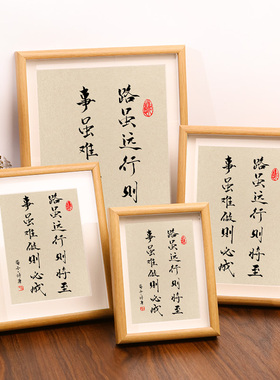 路虽远行则
事虽难
路虽远行则将至
事虽难做则必成
路虽远行则将至
事虽难做则必成
路虽远行则将至
事虽难做则必成